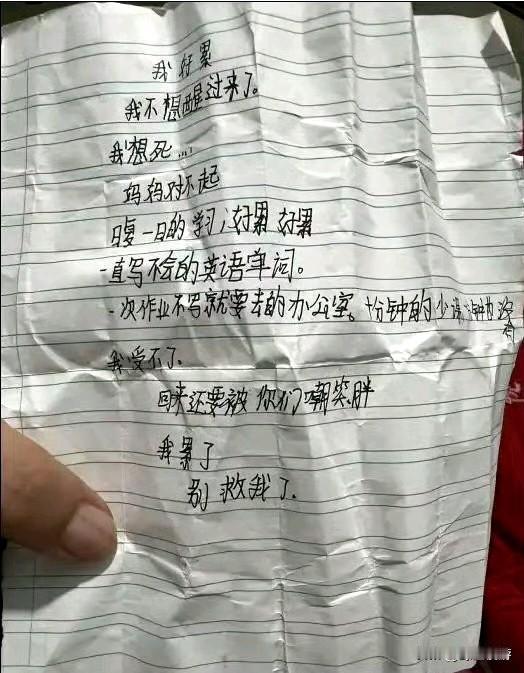 我好累
我不想醒过来了。
我想死...
妈妈对不起
日复一日的学习,好累 好累
一直写不会的英语单词。
一次作业不写就要去的办公室。十分钟的少误 钟为没有
我受不了
回来还要被你们嘲笑胖
我累了
别救我了.